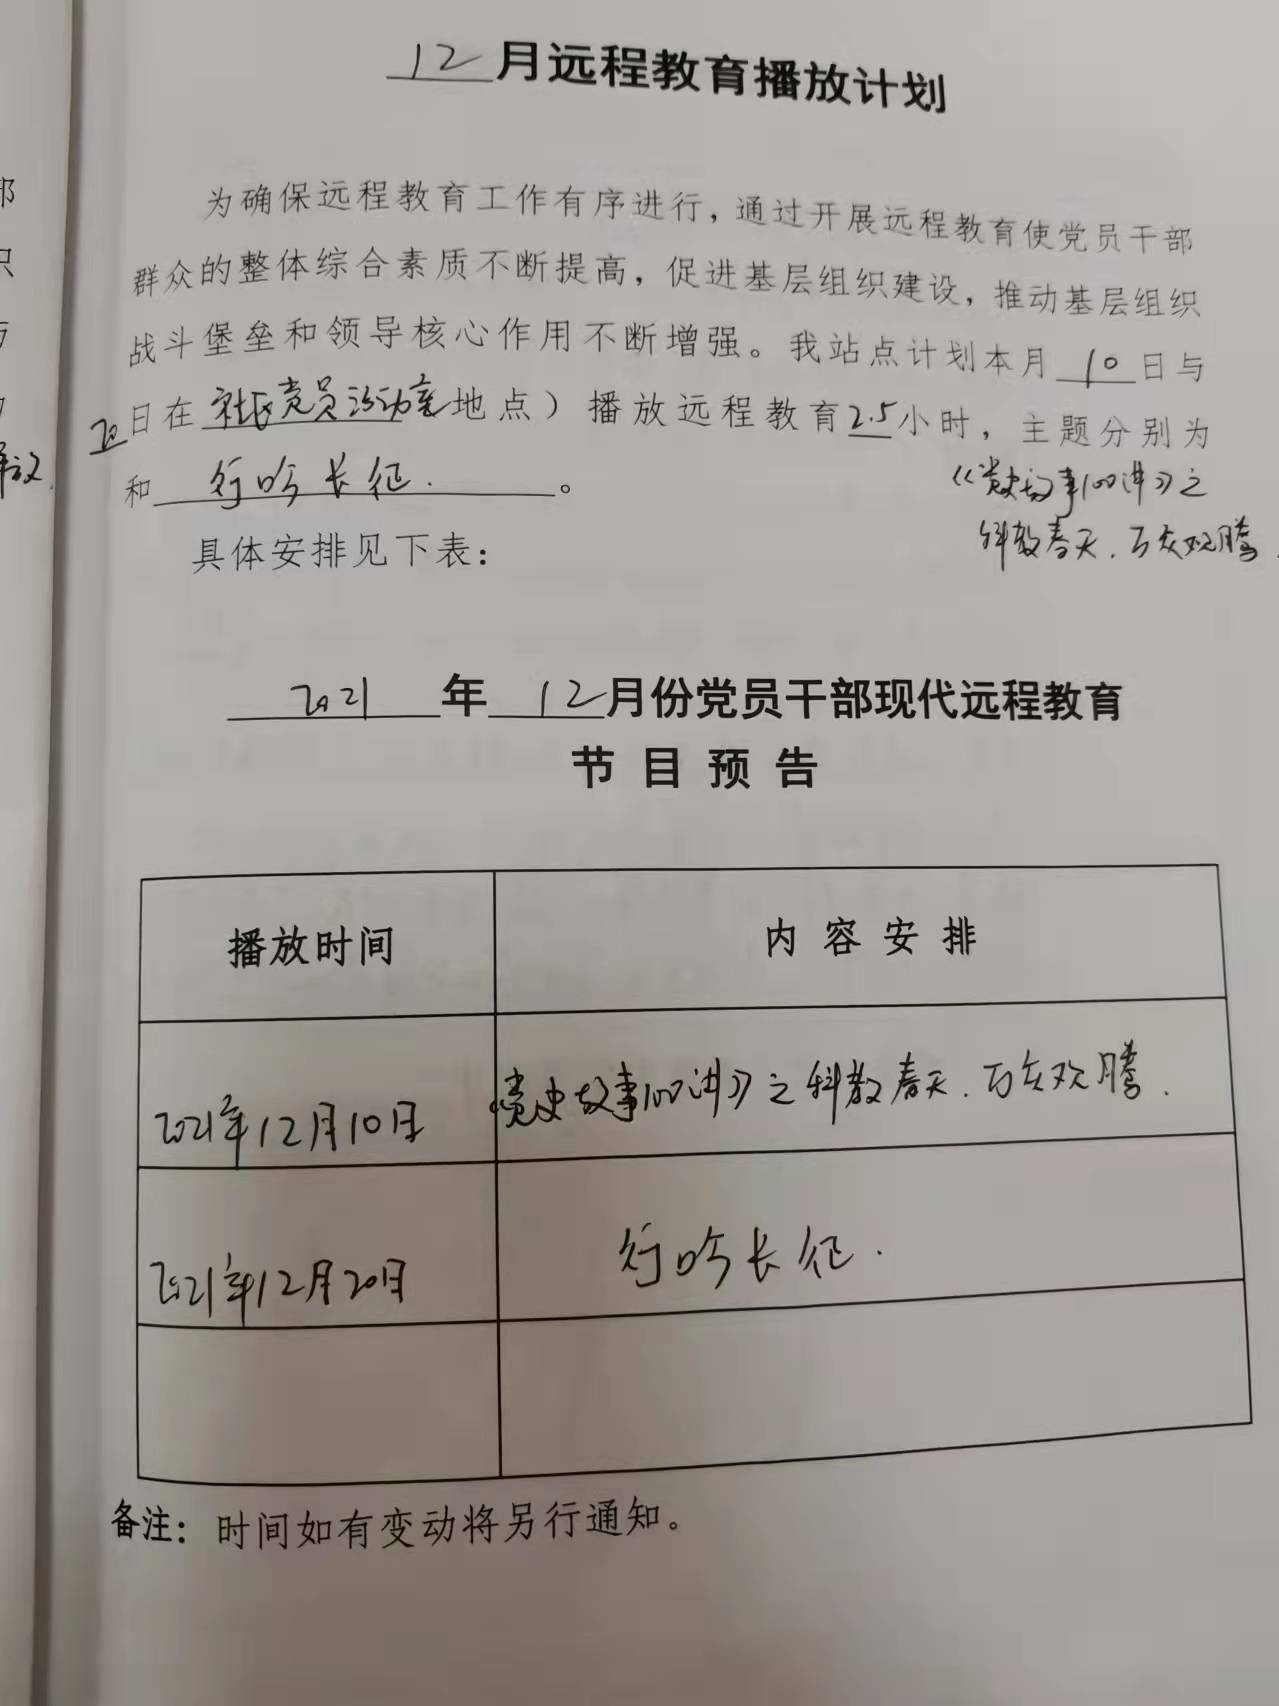 12月远程教育播放计划
为确保远程教育工作有序进行，通过开展远程教育使党员干部
群众的整体综合素质不断提高，促进基层组织建设，推动基层组织
战斗堡垒和领导核心作用不断增强。我站点计划本月10日与
20日在社区党员活动室地点）播放远程教育2.5小时，主题分别为
《党史故事100讲》之
科教春天.万众欢腾.
和行吟长征.。
具体安排见下表：
2021年12月份党员干部现代远程教育
节目预告
播放时间 内容安排
2021年12月10日 《党史故事100讲》之科教春天.万众欢腾.
2021年12月20日 行吟长征.
备注：时间如有变动将另行通知。